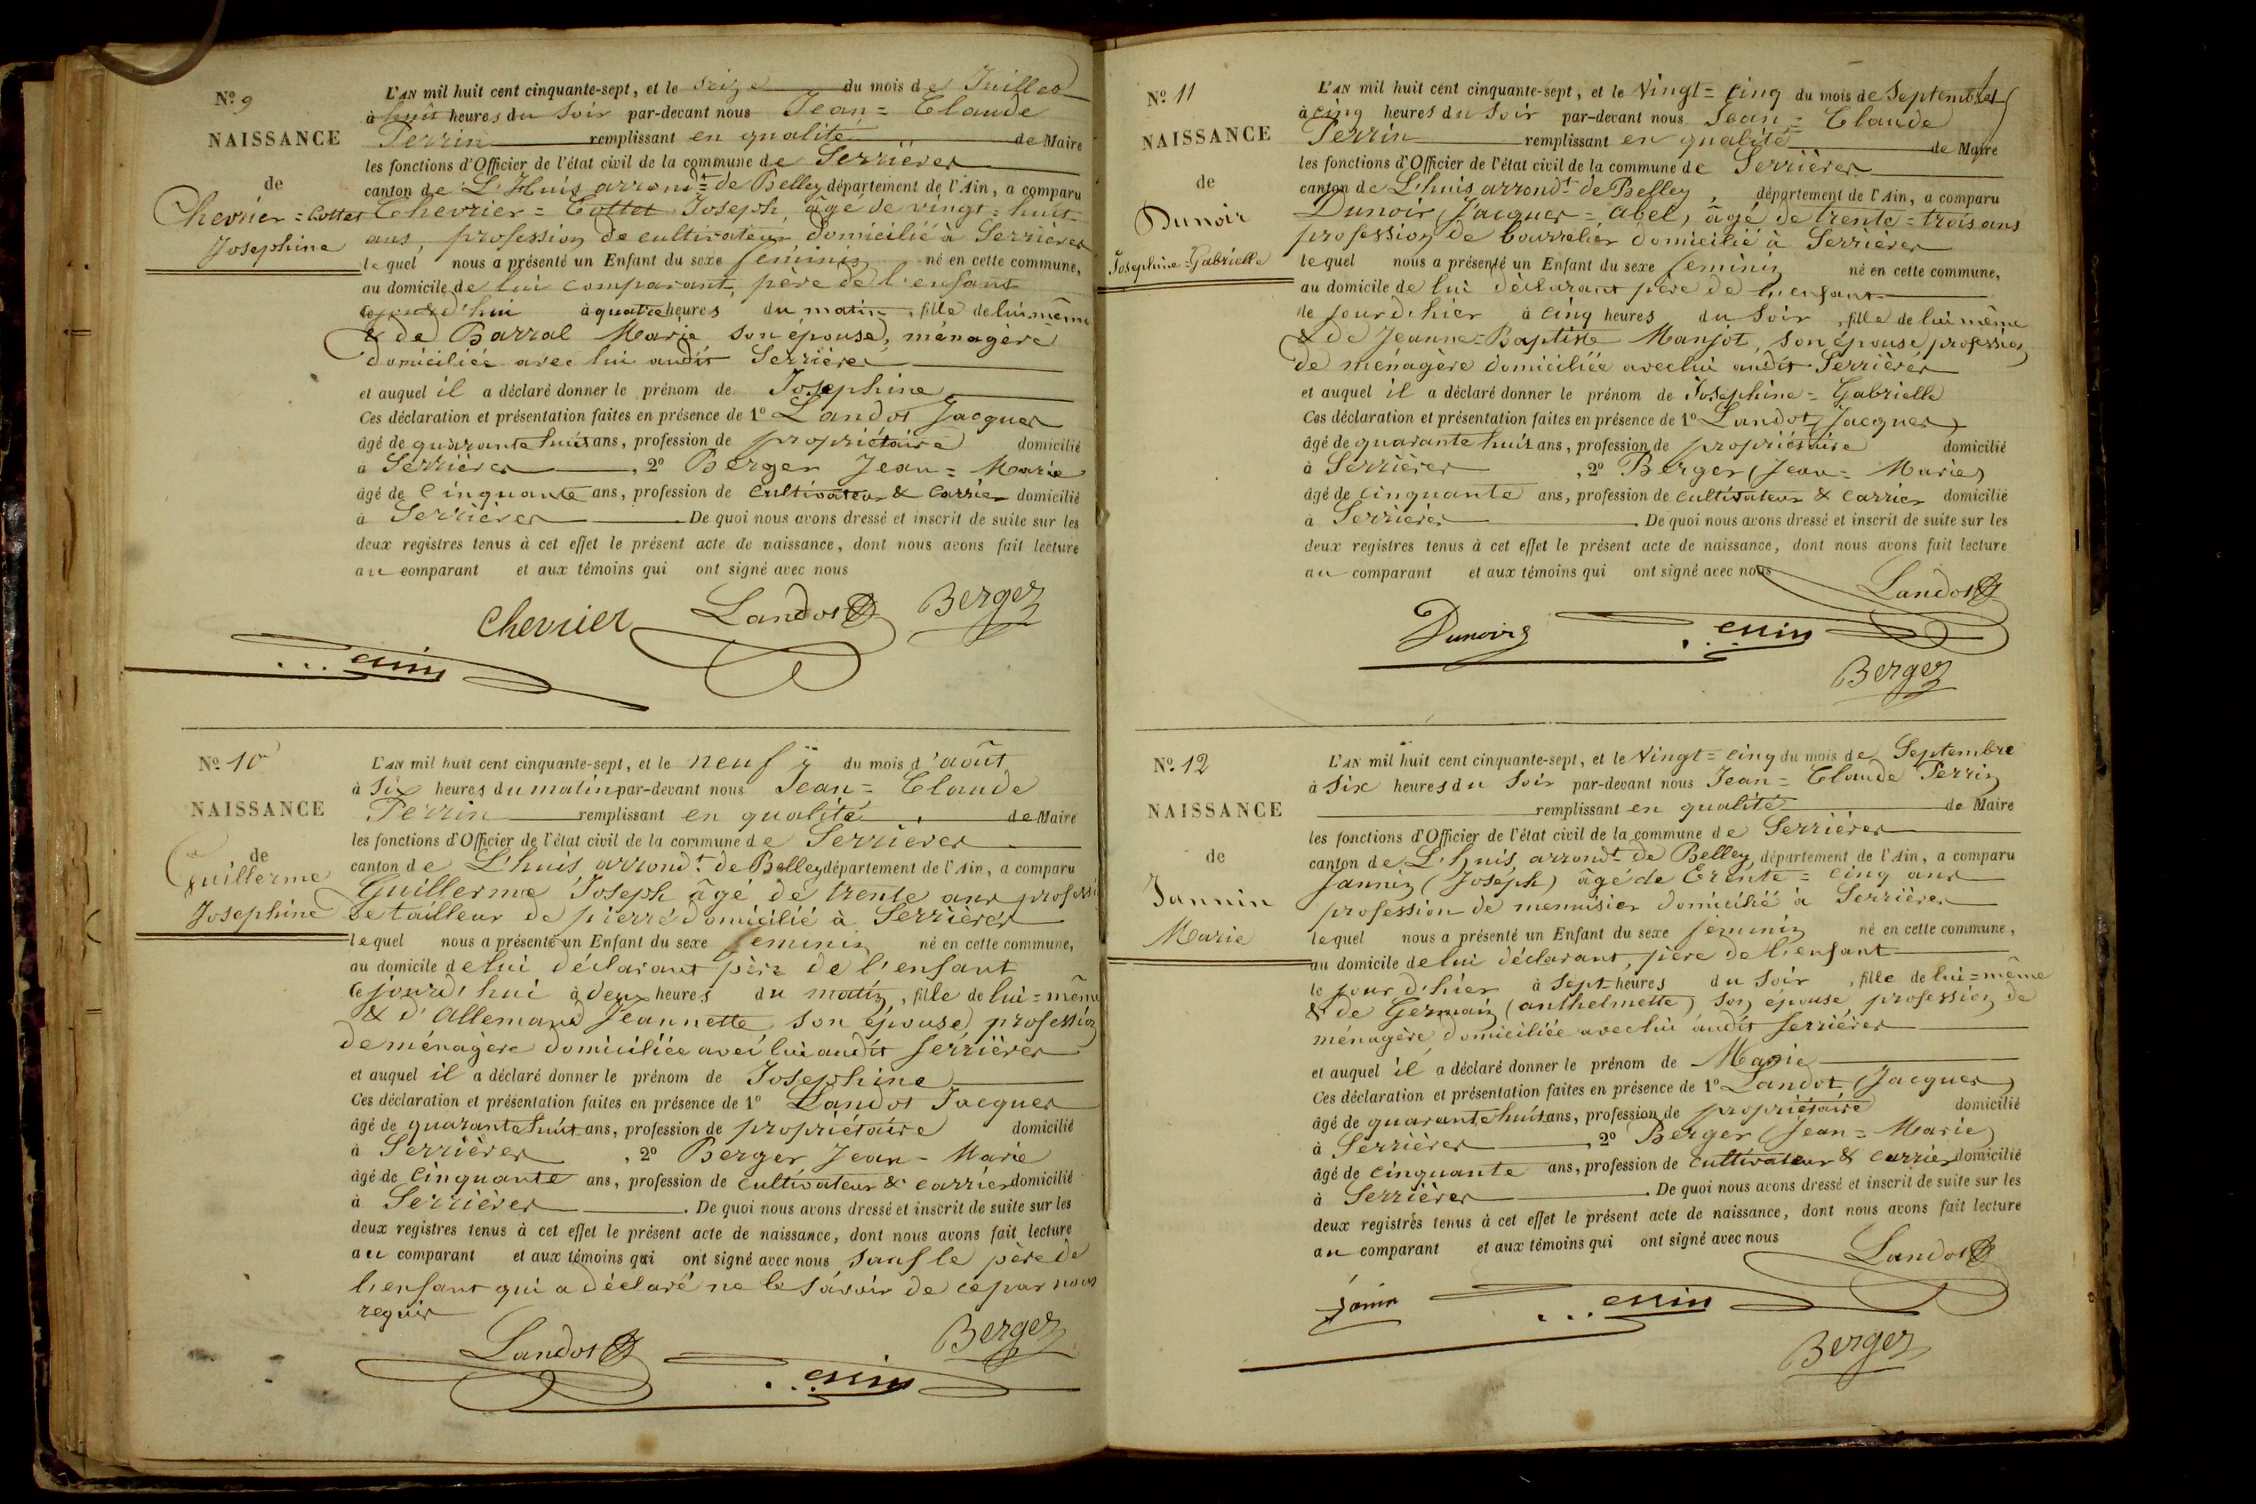 Nº 9
NAISSANCE
de
Chevrier = Cottet
Josephine
L'AN mil huit cent cinquante-sept, et le seize du mois de Juillet
à huit heures du soir par-devant nous Jean = Claude
Perrin remplissant en qualité de Maire
les fonctions d'Officier de l'état civil de la commune de Serrières
canton de L'Huis arrondt de Belley département de l'Ain, a comparu
Chevrier = Cottet Joseph, âgé de vingt = huit
ans, profession de cultivateur domicilié à Serrières
lequel nous a présenté un Enfant du sexe féminin né en cette commune,
au domicile de lui comparant, père de l'enfant
cejourd'hui à quatre heures du matin, fille de lui même
& de Barral Marie son épouse, ménagère
domiciliée avec lui audit Serrières
et auquel il a déclaré donner le prénom de Josephine
Ces déclaration et présentation faites en présence de 1º Landot Jacques
âgé de quarante huit ans, profession de propriétaire domicilié
à Serrières, 2º Berger Jean = Marie
âgé de Cinquante ans, profession de cultivateur & carrier domicilié
à Serrières De quoi nous avons dressé et inscrit de suite sur les
deux registres tenus à cet effet le présent acte de naissance, dont nous avons fait lecture
au comparant et aux témoins qui ont signé avec nous
Chevrier Landot Berger
Perrin
Nº 10
NAISSANCE
de
Guillerme
Josephine
L'AN mil huit cent cinquante-sept, et le neuf du mois d'août
à six heures du matin par-devant nous Jean = Claude
Perrin remplissant en qualité de Maire
les fonctions d'Officier de l'état civil de la commune de Serrières
canton de L'huis arrondt de Belley département de l'Ain, a comparu
Guillerme Joseph âgé de trente ans professi
de tailleur de pierre domicilié à Serrières
lequel nous a présenté un Enfant du sexe féminin né en cette commune,
au domicile de lui déclarant père de l'enfant
cejourd'hui à deux heures du matin, fille de lui = même
& d'Allemand Jeannette, son épouse, profession
de ménagère domiciliée avec lui audit Serrières
et auquel il a déclaré donner le prénom de Josephine
Ces déclaration et présentation faites en présence de 1º Landot Jacques
âgé de quarante huit ans, profession de propriétaire domicilié
à Serrières, 2º Berger Jean = Marie
âgé de Cinquante ans, profession de cultivateur & carrier domicilié
à Serrières. De quoi nous avons dressé et inscrit de suite sur les
deux registres tenus à cet effet le présent acte de naissance, dont nous avons fait lecture
au comparant et aux témoins qui ont signé avec nous sauf le père de
l'enfant qui a déclaré ne le savoir de ce par nous
requis
Landot Berger
Perrin
Nº 11
NAISSANCE
de
Dunoir
Josephine = Gabrielle
L'AN mil huit cent cinquante-sept, et le Vingt = cinq du mois de Septembre
à cinq heures du soir par-devant nous Jean = Claude
Perrin remplissant en qualité de Maire
les fonctions d'Officier de l'état civil de la commune de Serrières
canton de L'huis arrondt de Belley, département de l'Ain, a comparu
Dunoir (Jacques = Abel) âgé de trente = trois ans
profession de bourrelier domicilié à Serrières
lequel nous a présenté un Enfant du sexe féminin né en cette commune,
au domicile de lui déclarant père de l'enfant
le jour d'hier à cinq heures du soir, fille de lui même
& de Jeanne = Baptiste Manjot, son épouse profession
de ménagère domiciliée avec lui audit Serrières
et auquel il a déclaré donner le prénom de Josephine = Gabrielle
Ces déclaration et présentation faites en présence de 1º Landot (Jacques)
âgé de quarante huit ans, profession de propriétaire domicilié
à Serrières, 2º Berger (Jean = Marie)
âgé de cinquante ans, profession de cultivateur & carrier domicilié
à Serrières. De quoi nous avons dressé et inscrit de suite sur les
deux registres tenus à cet effet le présent acte de naissance, dont nous avons fait lecture
au comparant et aux témoins qui ont signé avec nous
Landot
Dunoir Perrin
Berger
Nº 12
NAISSANCE
de
Jannin
Marie
L'AN mil huit cent cinquante-sept, et le Vingt = cinq du mois de Septembre
à six heures du soir par-devant nous Jean = Claude Perrin
remplissant en qualité de Maire
les fonctions d'Officier de l'état civil de la commune de Serrières
canton de L'huis arrondt de Belley, département de l'Ain, a comparu
Jannin (Joseph) âgé de trente = cinq ans
profession de menuisier domicilié à Serrières
lequel nous a présenté un Enfant du sexe féminin né en cette commune,
au domicile de lui déclarant, père de l'enfant
le jour d'hier à sept heures du soir, fille de lui = même
& de Germain (anthelmette) son épouse, profession de
ménagère, domiciliée avec lui audit Serrières
et auquel il a déclaré donner le prénom de Marie
Ces déclaration et présentation faites en présence de 1º Landot (Jacques)
âgé de quarante huit ans, profession de propriétaire domicilié
à Serrières, 2º Berger (Jean = Marie)
âgé de cinquante ans, profession de cultivateur & carrier domicilié
à Serrières. De quoi nous avons dressé et inscrit de suite sur les
deux registres tenus à cet effet le présent acte de naissance, dont nous avons fait lecture
au comparant et aux témoins qui ont signé avec nous
Landot
Janin Perrin
Berger